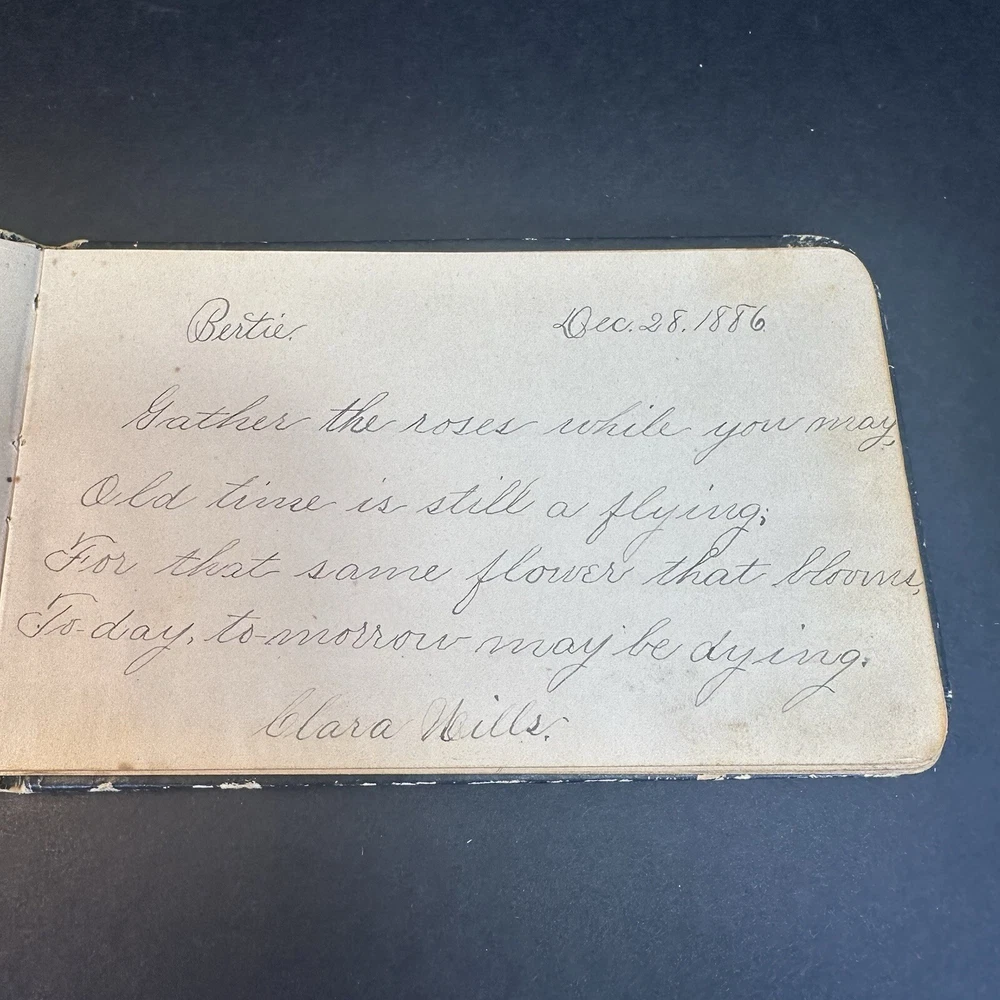 Bertie. Dec. 28. 1886
Gather the roses while you may,
Old time is still a flying;
For that same flower that blooms,
To-day, to-morrow may be dying.
Clara Wills.